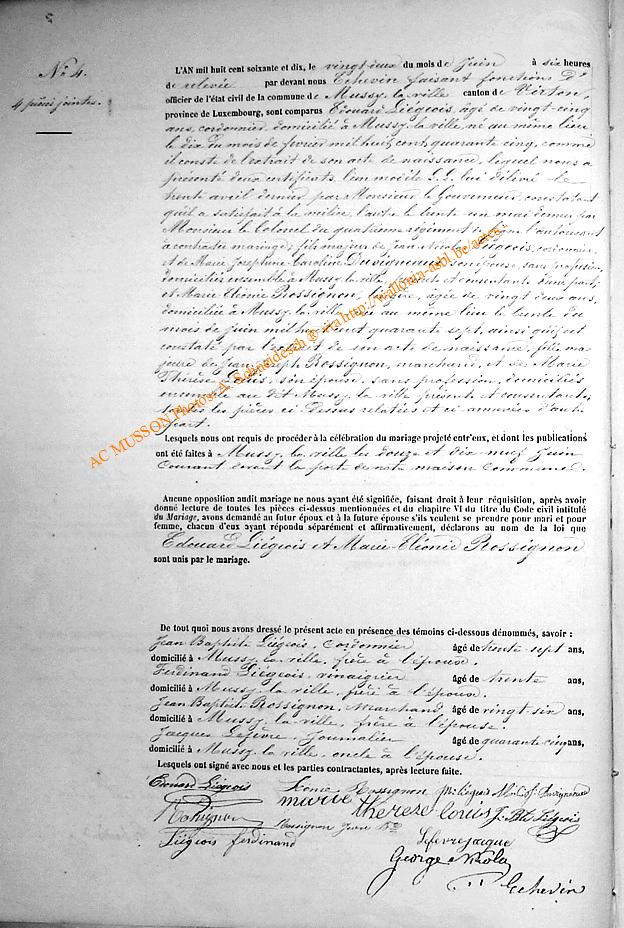 N° 4.
4 pièces jointes.
L'AN mil huit cent soixante et dix, le vingt deux du mois de Juin à six heures
de relevée par devant nous Echevin faisant fonctions d'
officier de l'état civil de la commune de Mussy la ville canton de Virton,
province de Luxembourg, sont comparus Edouard Liégeois, âgé de vingt-cinq
ans, cordonnier, domicilié à Mussy-la-ville, né au même lieu
le dix du mois de février mil huit cent quarante cinq, comme
il conste de l'extrait de son acte de naissance, lequel nous a
présenté deux certificats, l'un modèle L.L. lui délivré le
trente avril dernier par Monsieur le Gouverneur, constatant
qu'il a satisfait à la milice, l'autre le trente un mai dernier par
Monsieur le Colonel du quatrième régiment de ligne l'autorisant
à contracter mariage; fils majeur de Jean Nicolas Liégeois, cordonnier,
et de Marie Josephine Caroline Duvigneaud, son épouse, sans profession,
domiciliés ensemble à Mussy-la-ville, présents et consentants d'une part;
et Marie Eléonie Rossignon, âgée de vingt deux ans,
domiciliée à Mussy-la-ville, née au même lieu le trente du
mois de Juin mil huit cent quarante sept, ainsi qu'il est
constaté par l'extrait de son acte de naissance, fille ma-
jeure de Jean Joseph Rossignon, marchand, et de Marie
Thérèse Louis, son épouse, sans profession, domiciliés
ensemble au dit Mussy-la-ville présents et consentants,
toutes les pièces ci-dessus relatées et ci annexées d'autre
part.
Lesquels nous ont requis de procéder à la célébration du mariage projeté entr'eux, et dont les publications
ont été faites à Mussy-la-ville les douze et dix neuf Juin
courant devant la porte de notre maison commune.
Aucune opposition audit mariage ne nous ayant été signifiée, faisant droit à leur réquisition, après avoir
donné lecture de toutes les pièces ci-dessus mentionnées et du chapitre VI du titre du Code civil intitulé
du Mariage, avons demandé au futur époux et à la future épouse s'ils veulent se prendre pour mari et pour
femme, chacun d'eux ayant répondu séparément et affirmativement, déclarons au nom de la loi que
Edouard Liégeois et Marie-Eléonie Rossignon
sont unis par le mariage.
De tout quoi nous avons dressé le présent acte en présence des témoins ci-dessous dénommés, savoir :
Jean Baptiste Liégeois, Cordonnier âgé de trente sept ans,
domicilié à Mussy-la-ville, frère à l'époux.
Ferdinand Liégeois, vinaigrier âgé de trente ans,
domicilié à Mussy-la-ville, frère à l'époux.
Jean Baptiste Rossignon, Marchand âgé de vingt-six ans,
domicilié à Mussy-la-ville, frère à l'épouse.
Jacques Lefèvre, Journalier âgé de quarante cinq ans,
domicilié à Mussy-la-ville, oncle à l'épouse.
Lesquels ont signé avec nous et les parties contractantes, après lecture faite.
Edouard Liégeois Rossignon Liégeois Duvigneaud
marie thereze louis J. Bte Liégeois
Rossignon Rossignon Jean Bte
Liégeois ferdinand Lefevre Jacque
George Nicola
Echevin
AC MUSSON Photos A. Schneidesch ® via http://wallonia-asbl.be/actes/